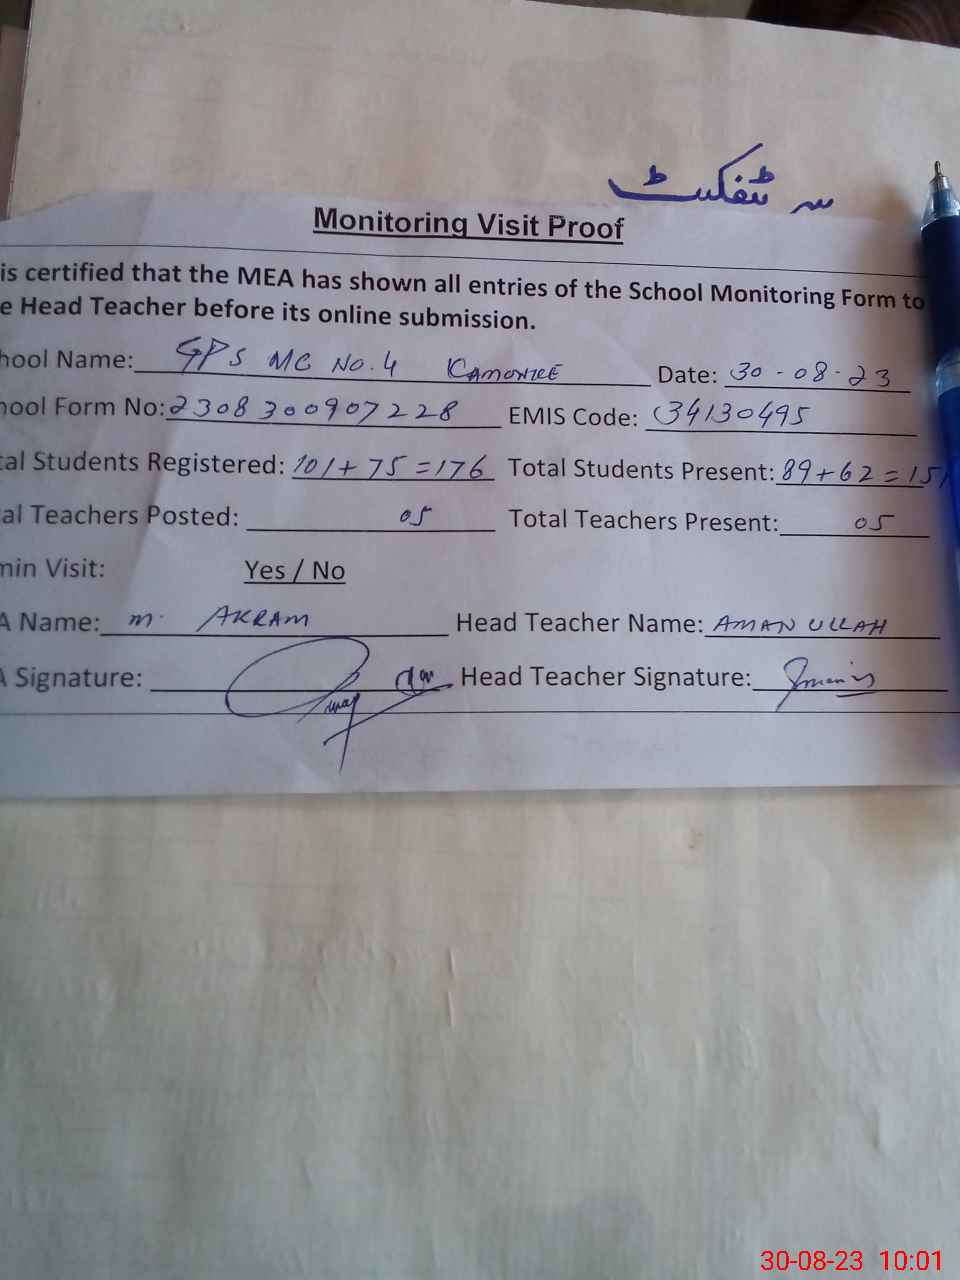 سرٹیفکیٹ
Monitoring Visit Proof
is certified that the MEA has shown all entries of the School Monitoring Form to
e Head Teacher before its online submission.
hool Name: GPS MC NO. 4 KAMONKE Date: 30-08-23
hool Form No: 2308300907228 EMIS Code: 34130495
tal Students Registered: 101+75=176 Total Students Present: 89+62=151
al Teachers Posted: 05 Total Teachers Present: 05
min Visit: Yes / No
A Name: M. AKRAM Head Teacher Name: AMAN ULLAH
A Signature: Head Teacher Signature:
30-08-23 10:01